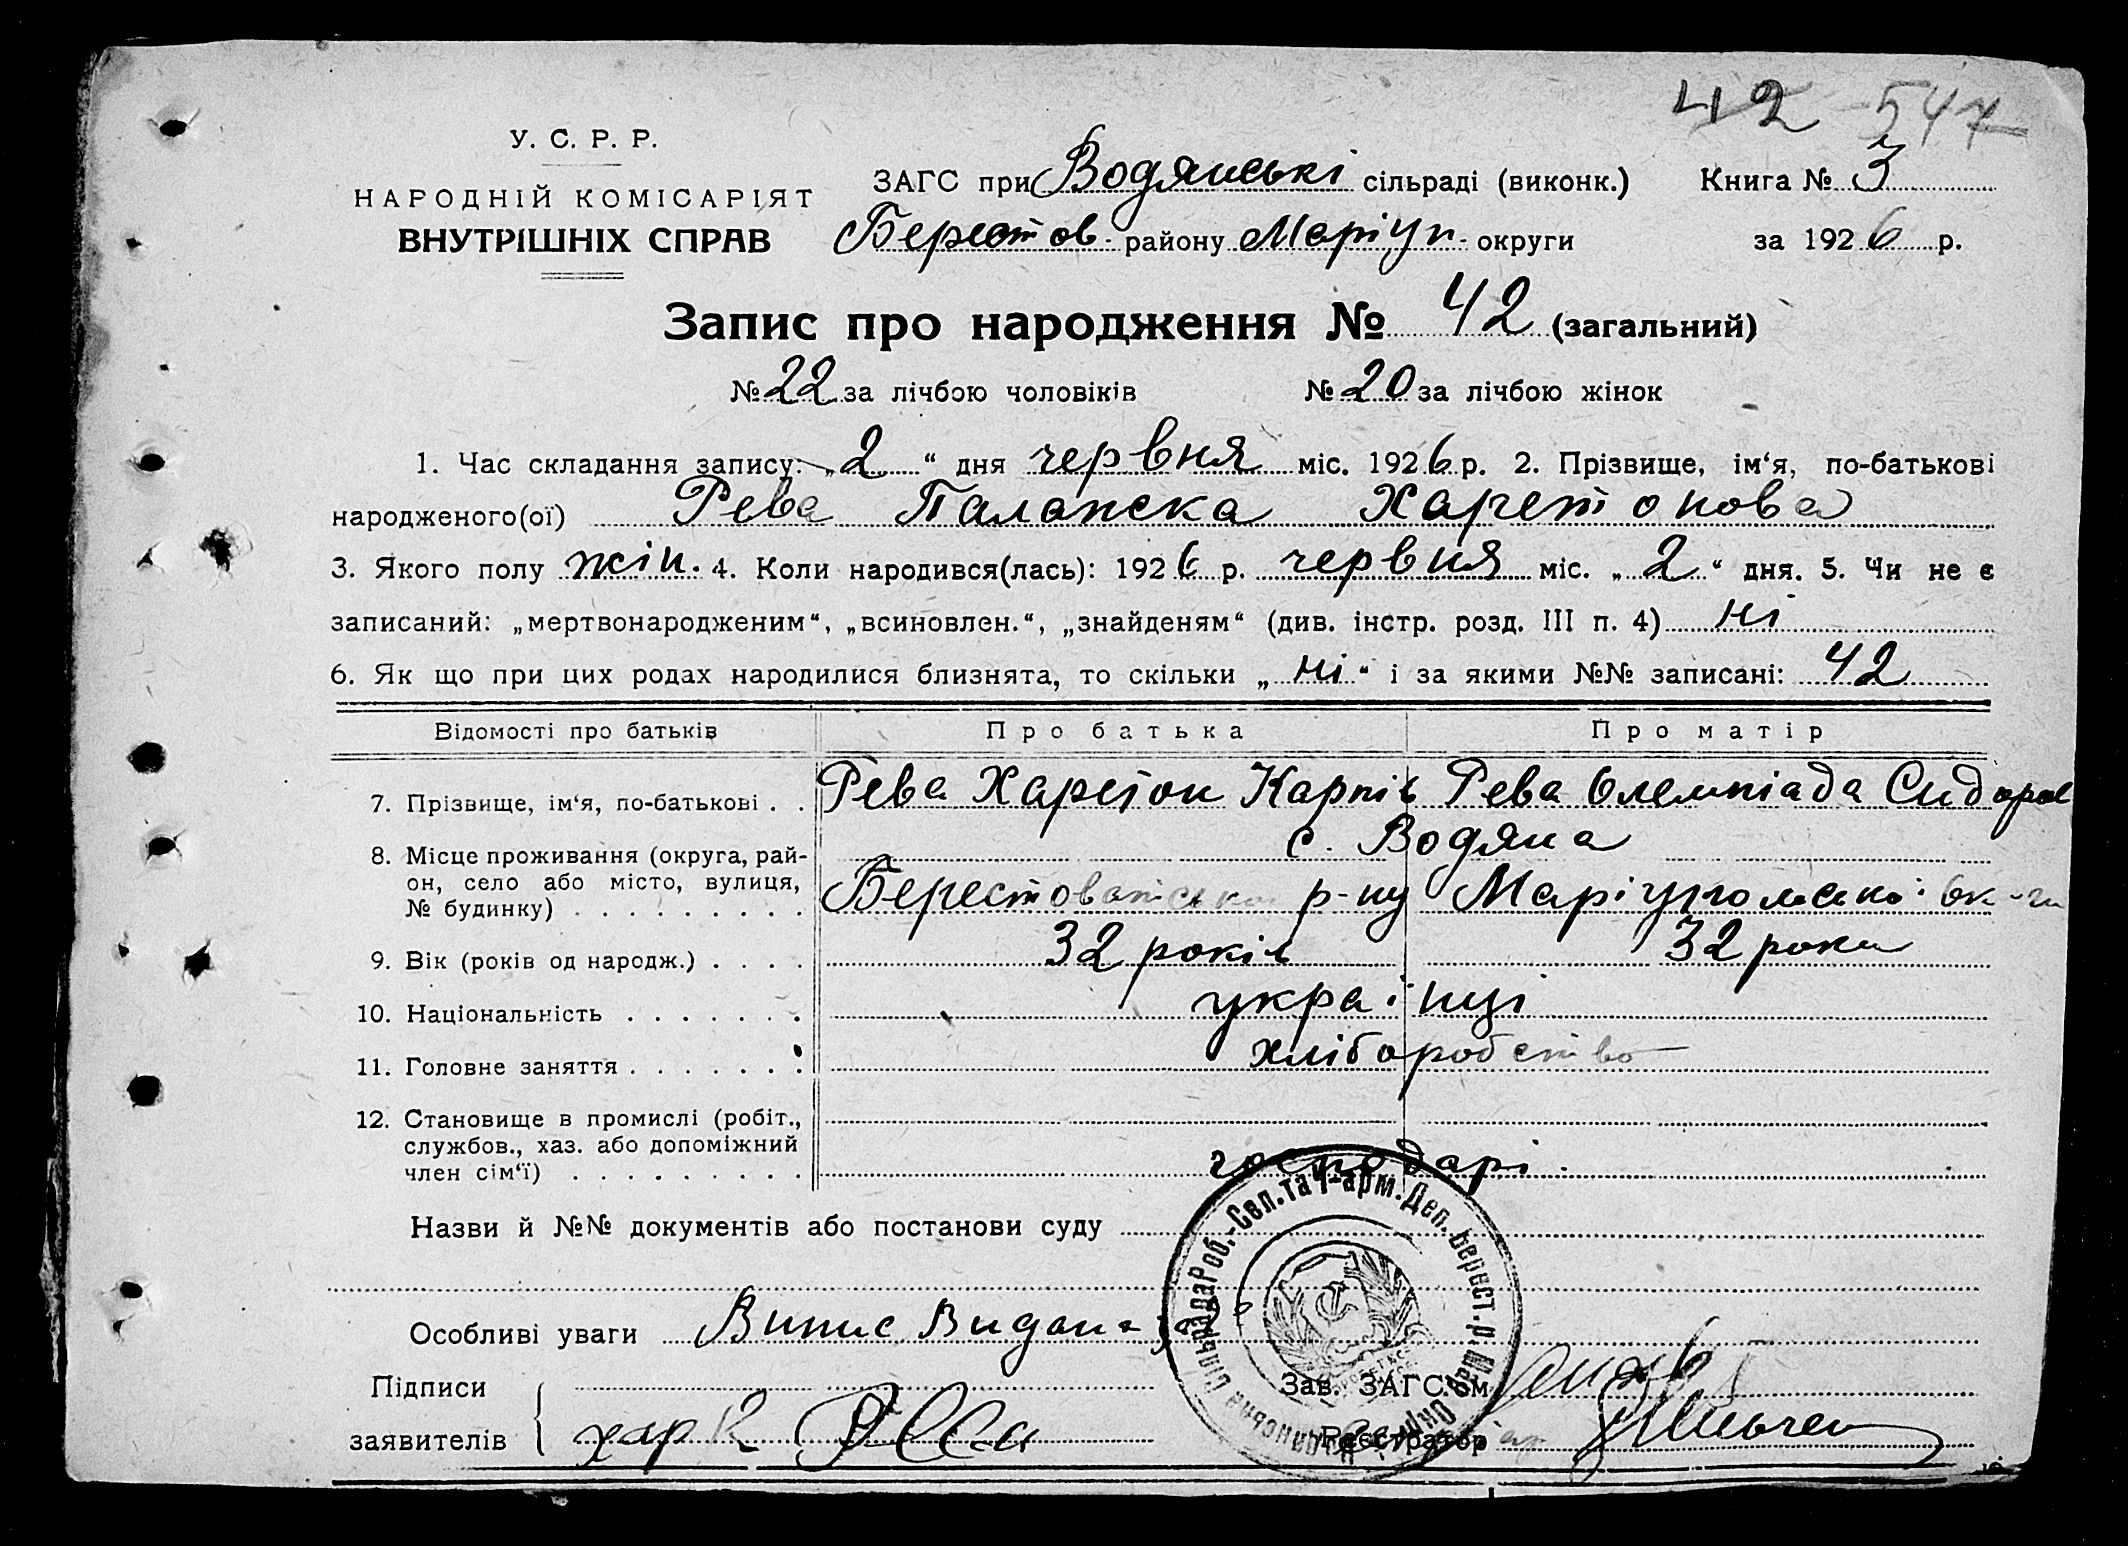 42 547
У. С. Р. Р.
НАРОДНІЙ КОМІСАРІЯТ
ВНУТРІШНІХ СПРАВ
ЗАГС при Водянські сільраді (виконк.) Книга № 3
Берестов. району Маріуп. округи за 1926 р.
Запис про народження № 42 (загальний)
№ 22 за лічбою чоловіків № 20 за лічбою жінок
1. Час складання запису: „2“ дня червня міс. 1926 р. 2. Прізвище, ім‘я, по-батькові
народженого(ої) Рева Палажска Харетонова
3. Якого полу жін. 4. Коли народився(лась): 1926 р. червня міс. „2“ дня. 5. Чи не є
записаний: „мертвонародженим“, „всиновлен.“, „знайденям“ (див. інстр. розд. III п. 4) ні
6. Як що при цих родах народилися близнята, то скільки „ні“ і за якими №№ записані: 42
Відомості про батьків Про батька Про матір
7. Прізвище, ім‘я, по-батькові . . Рева Харетон Карпів Рева Олемпіада Сидоров
8. Місце проживання (округа, рай-
он, село або місто, вулиця,
№ будинку) . . . . . . . . .
с. Водяна
Берестоватсько р-ну Маріупольскої ок-ги
9. Вік (років од народж.) . . . . 32 років 32 роки
10. Національність . . . . . . . українці
11. Головне заняття . . . . . . . хліборобство
12. Становище в промислі (робіт.,
службов., хаз. або допоміжний
член сім‘ї) . . . . . . . . . господарі.
Назви й №№ документів або постанови суду
Особливі уваги Випис Видан
Підписи
заявителів
хар Рева
Зав. ЗАГС‘ом
Реєстратор
Сільрада Роб.-Сел. та Ч-арм. Деп. Берест. р.